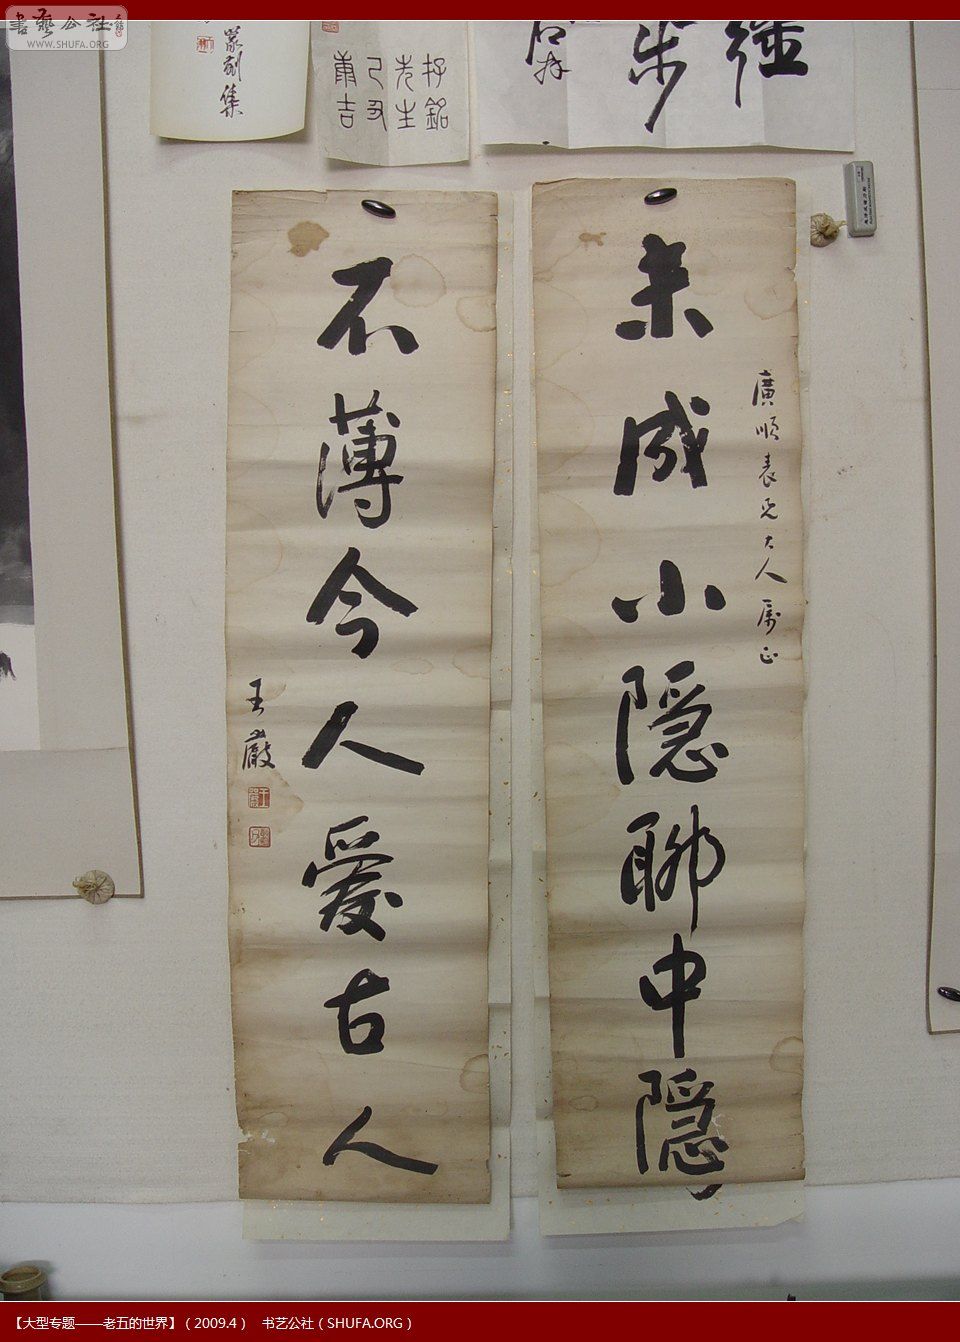 書藝公社
WWW.SHUFA.ORG
篆刻集
未成小隐聊中隐
廣順表兄大人属正
不薄今人爱古人
王巖
【大型专题——老五的世界】（2009.4） 书艺公社（SHUFA.ORG）